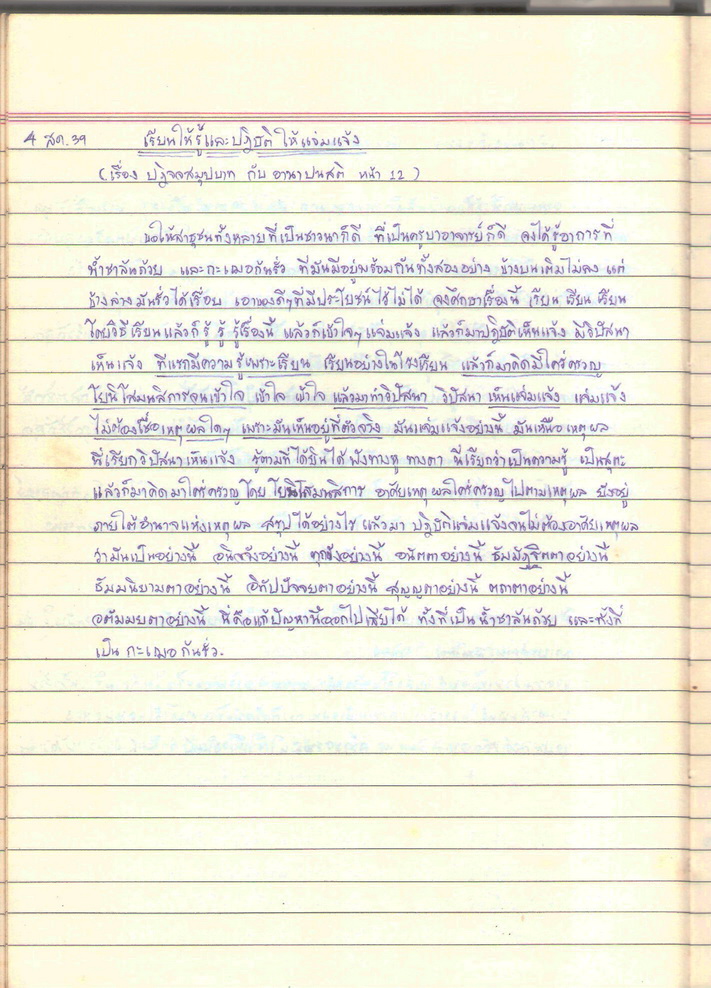 4 สค.39 เรียนให้รู้และปฏิบัติให้แจ่มแจ้ง
(เรื่อง ปฏิจจสมุปบาท กับ อานาปนสติ หน้า 12)
ขอให้สาธุชนทั้งหลายที่เป็นชาวนาก็ดี ที่เป็นครูบาอาจารย์ก็ดี จงได้รู้อาการที่
น้ำชาล้นถ้วย และกะเฌอก้นรั่ว ที่มันมีอยู่พร้อมกันทั้งสองอย่าง ข้างบนเติมไม่ลง แต่
ข้างล่างมันรั่วได้เรื่อย เอาของดีๆที่มีประโยชน์ไว้ไม่ได้ จงศึกษาเรื่องนี้ เรียน เรียน เรียน
โดยวิธีเรียนแล้วก็รู้ รู้ รู้เรื่องนี้ แล้วก็เข้าใจๆ แจ่มแจ้ง แล้วก็มาปฏิบัติเห็นแจ้ง มีวิปัสนา
เห็นแจ้ง ทีแรกมีความรู้เพราะเรียน เรียนอย่างในโรงเรียน แล้วก็มาคิดมีใคร่ครวญ
โยนิโสมนสิการจนเข้าใจ เข้าใจ เข้าใจ แล้วมาทำวิปัสนา วิปัสนา เห็นแจ่มแจ้ง แจ่มแจ้ง
ไม่ต้องเชื่อเหตุผลใดๆ เพราะมันเห็นอยู่ที่ตัวจริง มันแจ่มแจ้งอย่างนี้ มันเหนือเหตุผล
นี่เรียกวิปัสนาเห็นแจ้ง รู้ตามที่ได้ยินได้ฟังทางหู ทางตา นี่เรียกว่าเป็นความรู้ เป็นสุตะ
แล้วก็มาคิดมาใคร่ครวญโดย โยนิโสมนสิการ อาศัยเหตุผลใคร่ครวญไปตามเหตุผล ยังอยู่
ภายใต้อำนาจแห่งเหตุผล สรุปได้อย่างไร แล้วมา ปฏิบัติแจ่มแจ้งจนไม่ต้องอาศัยเหตุผล
ว่ามันเป็นอย่างนี้ อนิจจังอย่างนี้ ทุกขังอย่างนี้ อนัตตาอย่างนี้ ธัมมัฏฐิตตาอย่างนี้
ธัมมนิยามตาอย่างนี้ อิทัปปัจจยตาอย่างนี้ สุญญตาอย่างนี้ ตถาตาอย่างนี้
อตัมมยตาอย่างนี้ นี่คือแก้ปัญหานี้ออกไปเสียได้ ทั้งที่เป็นน้ำชาล้นถ้วย และทั้งที่
เป็น กะเฌอก้นรั่ว.